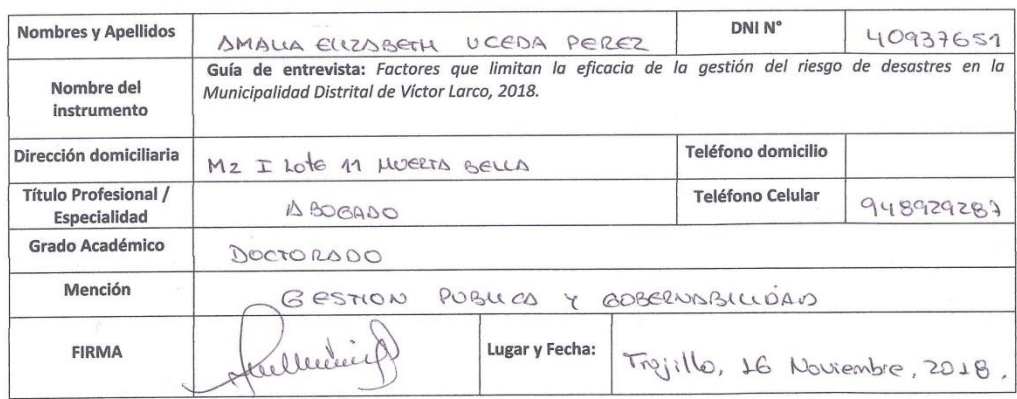 Nombres y Apellidos AMALIA ELIZABETH UCEDA PEREZ DNI N° 40937651
Guía de entrevista: Factores que limitan la eficacia de la gestión del riesgo de desastres en la
Nombre del instrumento Municipalidad Distrital de Víctor Larco, 2018.
Dirección domiciliaria Mz I Lote 11 HUERTA BELLA Teléfono domicilio
Título Profesional / Especialidad ABOGADO Teléfono Celular 948929287
Grado Académico DOCTORADO
Mención GESTION PUBLICA Y GOBERNABILIDAD
FIRMA Lugar y Fecha: Trujillo, 16 Noviembre, 2018.